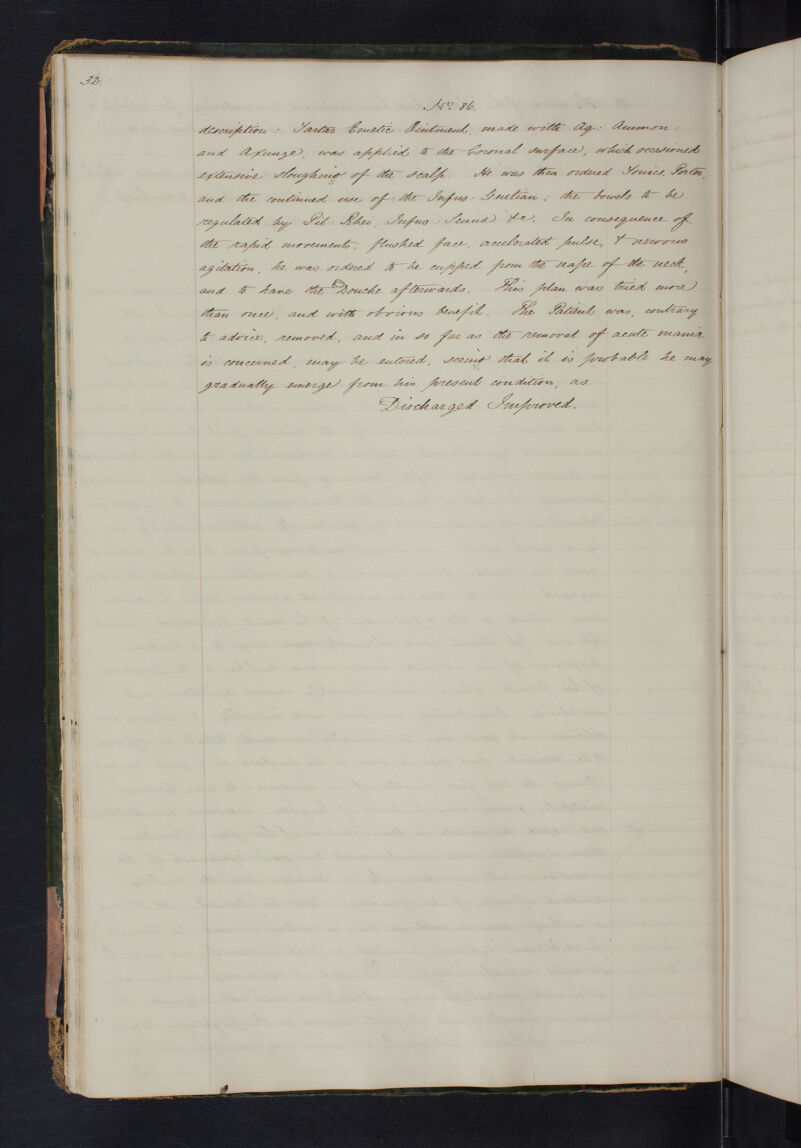 32.
No. 86.
description: Tartar Emetic Ointment, made with Aq: Ammon:
and Axunge, was applied to the Coronal surface, which occasioned
extensive sloughing of the scalp. He was then ordered Tonics, Porter,
and the continued use of the Infus: Gentian; the bowels to be
regulated by Pil: Rhei Infus: Senna &c. In consequence of
the rapid movements, flushed face, accelerated pulse, & nervous
agitation, he was ordered to be cupped from the nape of the neck,
and to have the Douche afterwards. This plan was tried more
than once, and with obvious benefit. The Patient was, contrary
to advice, removed, and in so far as the removal of acute mania
is concerned, may be entered, seeing that it is probable he may
gradually emerge from his present condition, as
Discharged Improved.